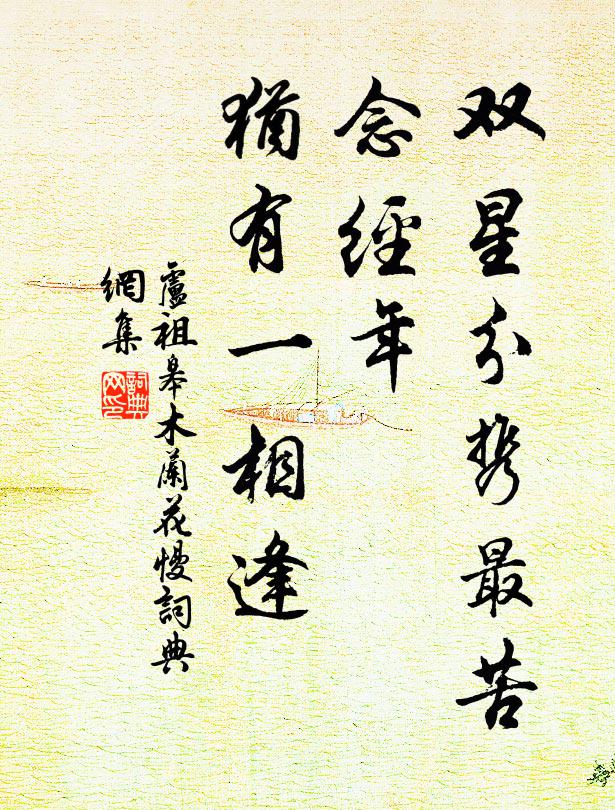 双星分携最苦
念經年
猶有一相逢
盧祖皋木蘭花慢詞典
網集
詞典
网印